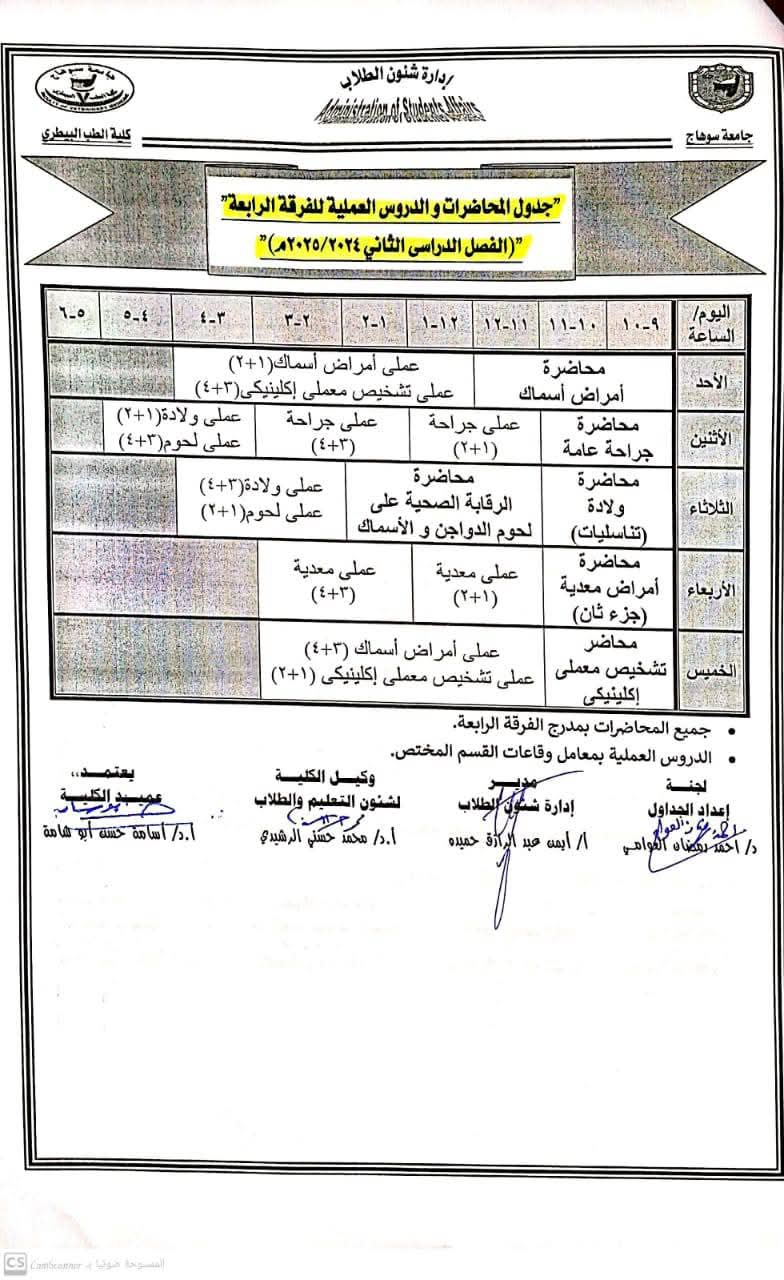 إدارة شئون الطلاب
Administration of Students Affairs
جامعة سوهاج
كلية الطب البيطري
"جدول المحاضرات و الدروس العملية للفرقة الرابعة"
"(الفصل الدراسى الثاني ٢٠٢٥/٢٠٢٤م)"
اليوم/ الساعة
٩-١٠
١٠-١١
١١-١٢
١٢-١
١-٢
٢-٣
٣-٤
٤-٥
٥-٦
الأحد
محاضرة
أمراض أسماك
عملى أمراض أسماك(١+٢)
عملى تشخيص معملى إكلينيكى(٣+٤)
الأثنين
محاضرة
جراحة عامة
عملى جراحة
(١+٢)
عملى جراحة
(٣+٤)
عملى ولادة(١+٢)
عملى لحوم(٣+٤)
الثلاثاء
محاضرة
ولادة
(تناسليات)
محاضرة
الرقابة الصحية على
لحوم الدواجن و الأسماك
عملى ولادة(٣+٤)
عملى لحوم(١+٢)
الأربعاء
محاضرة
أمراض معدية
(جزء ثان)
عملى معدية
(١+٢)
عملى معدية
(٣+٤)
الخميس
محاضر
تشخيص معملى
إكلينيكى
عملى أمراض أسماك (٣+٤)
عملى تشخيص معملى إكلينيكى (١+٢)
• جميع المحاضرات بمدرج الفرقة الرابعة.
• الدروس العملية بمعامل وقاعات القسم المختص.
لجنة
إعداد الجداول
د/ أحمد رمضان العوامي
مدير
إدارة شئون الطلاب
أ/ أيمن عبد الرازق حميده
وكيل الكلية
لشئون التعليم والطلاب
أ.د/ محمد حسني الرشيدي
يعتمد،،
عميد الكلية
أ.د/ أسامة حسن أبو شامة
CS
الممسوحة ضوئيا بـ CamScanner